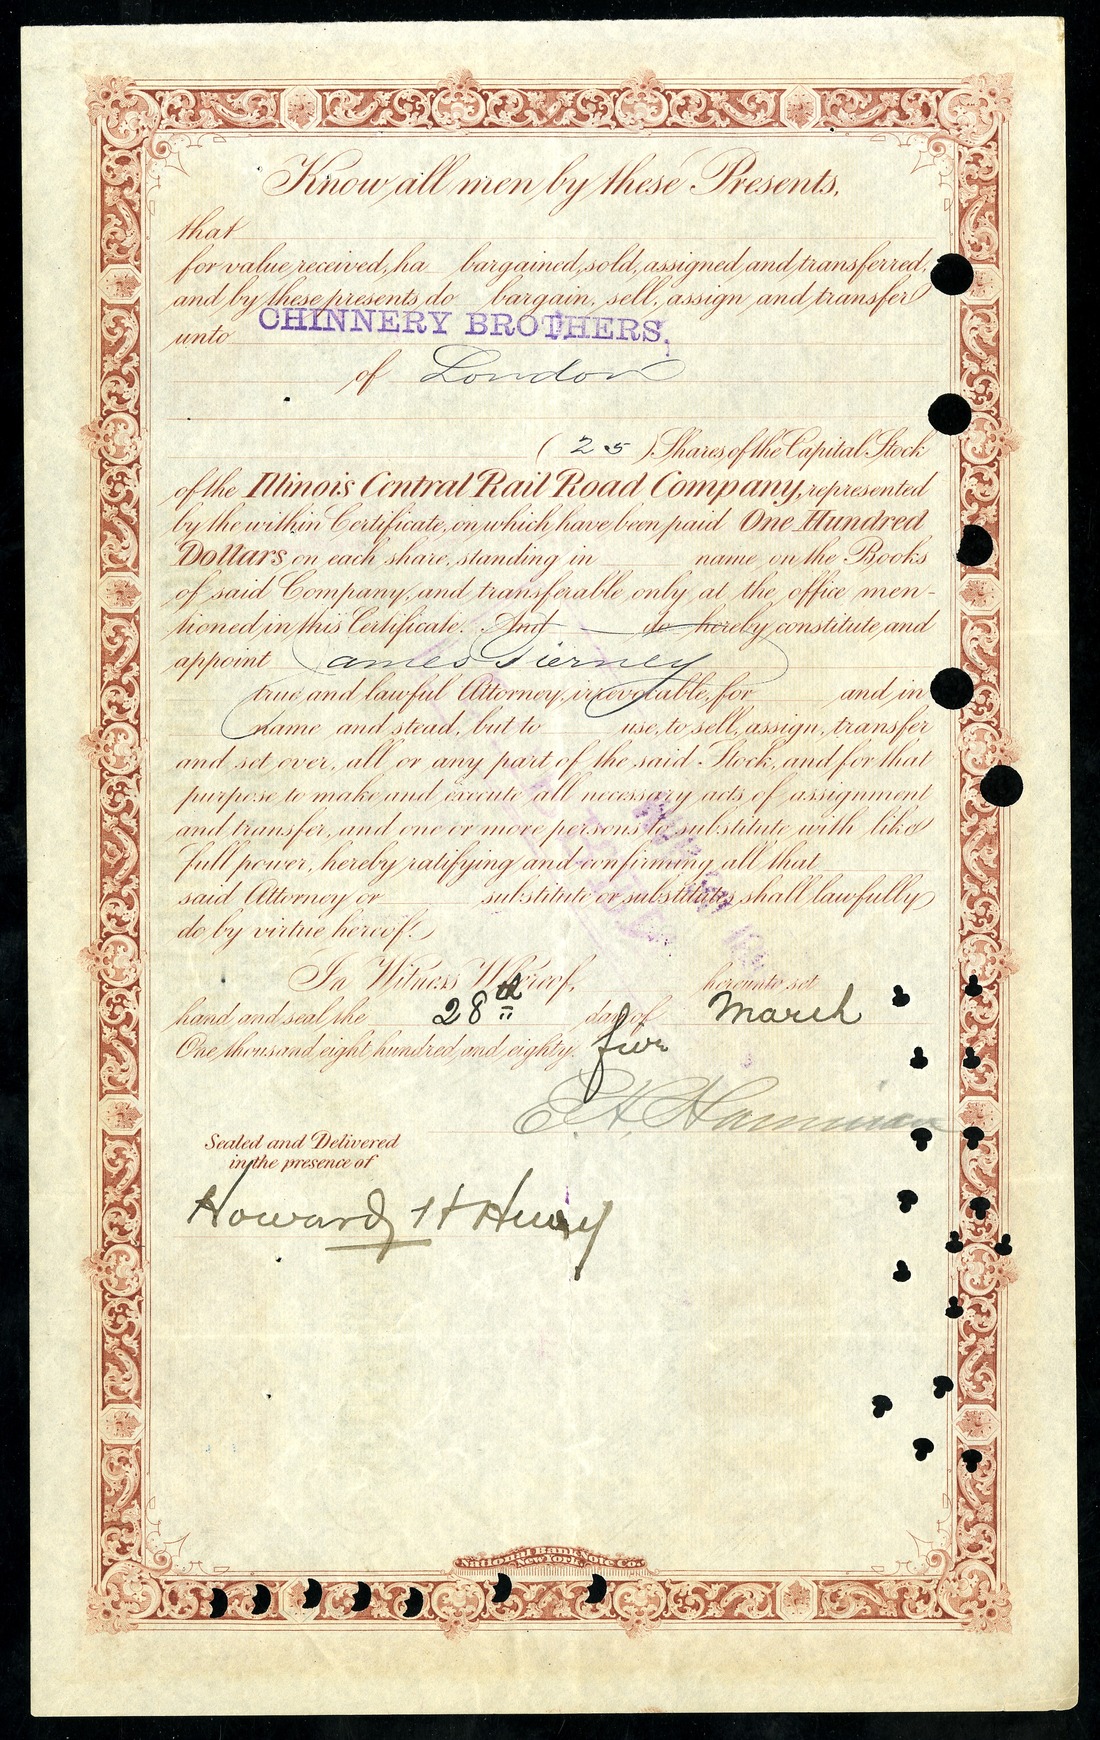 Know all men by these Presents,
that
for value received, ha bargained, sold, assigned and transferred,
and by these presents do bargain, sell, assign and transfer
unto CHINNERY BROTHERS,
of London
(25) Shares of the Capital Stock
of the Illinois Central Rail Road Company, represented
by the within Certificate, on which have been paid One Hundred
Dollars on each share, standing in name on the Books
of said Company, and transferable only at the office men-
tioned in this Certificate. And do hereby constitute and
appoint James Tierney
true and lawful Attorney, irrevocable, for and in
name and stead, but to use, to sell, assign, transfer
and set over, all or any part of the said Stock, and for that
purpose to make and execute all necessary acts of assignment
and transfer, and one or more persons to substitute with like
full power, hereby ratifying and confirming all that
said Attorney or substitute or substitutes shall lawfully
do by virtue hereof.
In Witness Whereof, hereunto set
hand and seal the 28th day of March
One thousand eight hundred and eighty five
E H Harriman
Sealed and Delivered
in the presence of
Howard H Henry
National Bank Note Co.
New York.